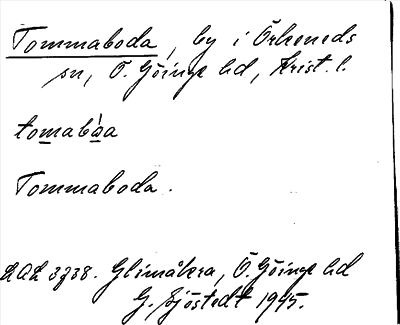 Tommaboda, by i Örkeneds
sn, Ö. Göinge hd, Krist. l.
tomabǻa
Tommaboda.
LAL 3738. Glimåkra, Ö. Göinge hd
G. Sjöstedt 1945.